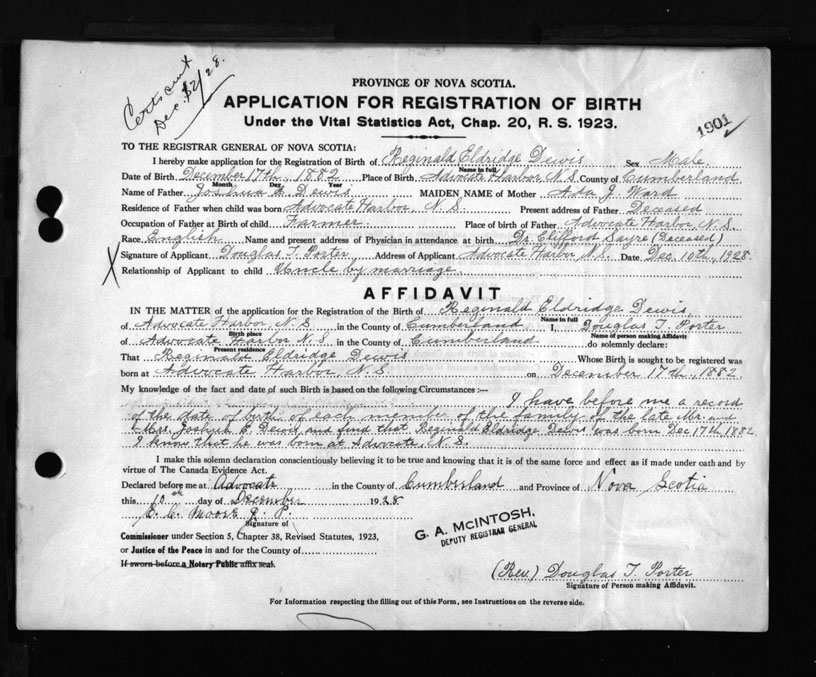 Certs sent
Dec. 12/28.
PROVINCE OF NOVA SCOTIA.
APPLICATION FOR REGISTRATION OF BIRTH
Under the Vital Statistics Act, Chap. 20, R. S. 1923.
1901
TO THE REGISTRAR GENERAL OF NOVA SCOTIA:
I hereby make application for the Registration of Birth of Reginald Eldridge Dewis Sex Male
Name in full
Date of Birth December 17th, 1882 Place of Birth Advocate Harbor, N. S. County of Cumberland
Month Day Year
Name of Father Joshua E. Dewis MAIDEN NAME of Mother Ada J. Ward
Residence of Father when child was born Advocate Harbor, N. S. Present address of Father Deceased
Occupation of Father at Birth of child Farmer Place of birth of Father Advocate Harbor, N. S.
Race English Name and present address of Physician in attendance at birth Dr. Clifford Sayre (Deceased)
X Signature of Applicant Douglas T. Porter Address of Applicant Advocate Harbor N. S. Date Dec. 10th, 1928
Relationship of Applicant to child Uncle by marriage
AFFIDAVIT
IN THE MATTER of the application for the Registration of the Birth of Reginald Eldridge Dewis
Name in full
of Advocate Harbor, N. S. in the County of Cumberland I, Douglas T. Porter
Birth place Name of person making Affidavit
of Advocate Harbor N. S. in the County of Cumberland do solemnly declare:
Present residence
That Reginald Eldridge Dewis Whose Birth is sought to be registered was
born at Advocate Harbor N. S. on December 17th, 1882
My knowledge of the fact and date of such Birth is based on the following Circumstances :—
I have before me a record
of the date of birth of each member of the family of the late Mr. and
Mrs. Joshua E. Dewis and find that Reginald Eldridge Dewis was born Dec 17th 1882
I know that he was born at Advocate N. S.
I make this solemn declaration conscientiously believing it to be true and knowing that it is of same force and effect as if made under oath and by
virtue of The Canada Evidence Act.
Declared before me at Advocate in the County of Cumberland and Province of Nova Scotia
this 10th day of December 1928
E. C. Moore J. P.
Signature of
G. A. McINTOSH,
DEPUTY REGISTRAR GENERAL
Commissioner under Section 5, Chapter 38, Revised Statutes, 1923,
or Justice of the Peace in and for the County of
If sworn before a Notary Public affix seal.
(Rev.) Douglas T. Porter
Signature of Person making Affidavit.
For Information respecting the filling out of this Form, see Instructions on the reverse side.